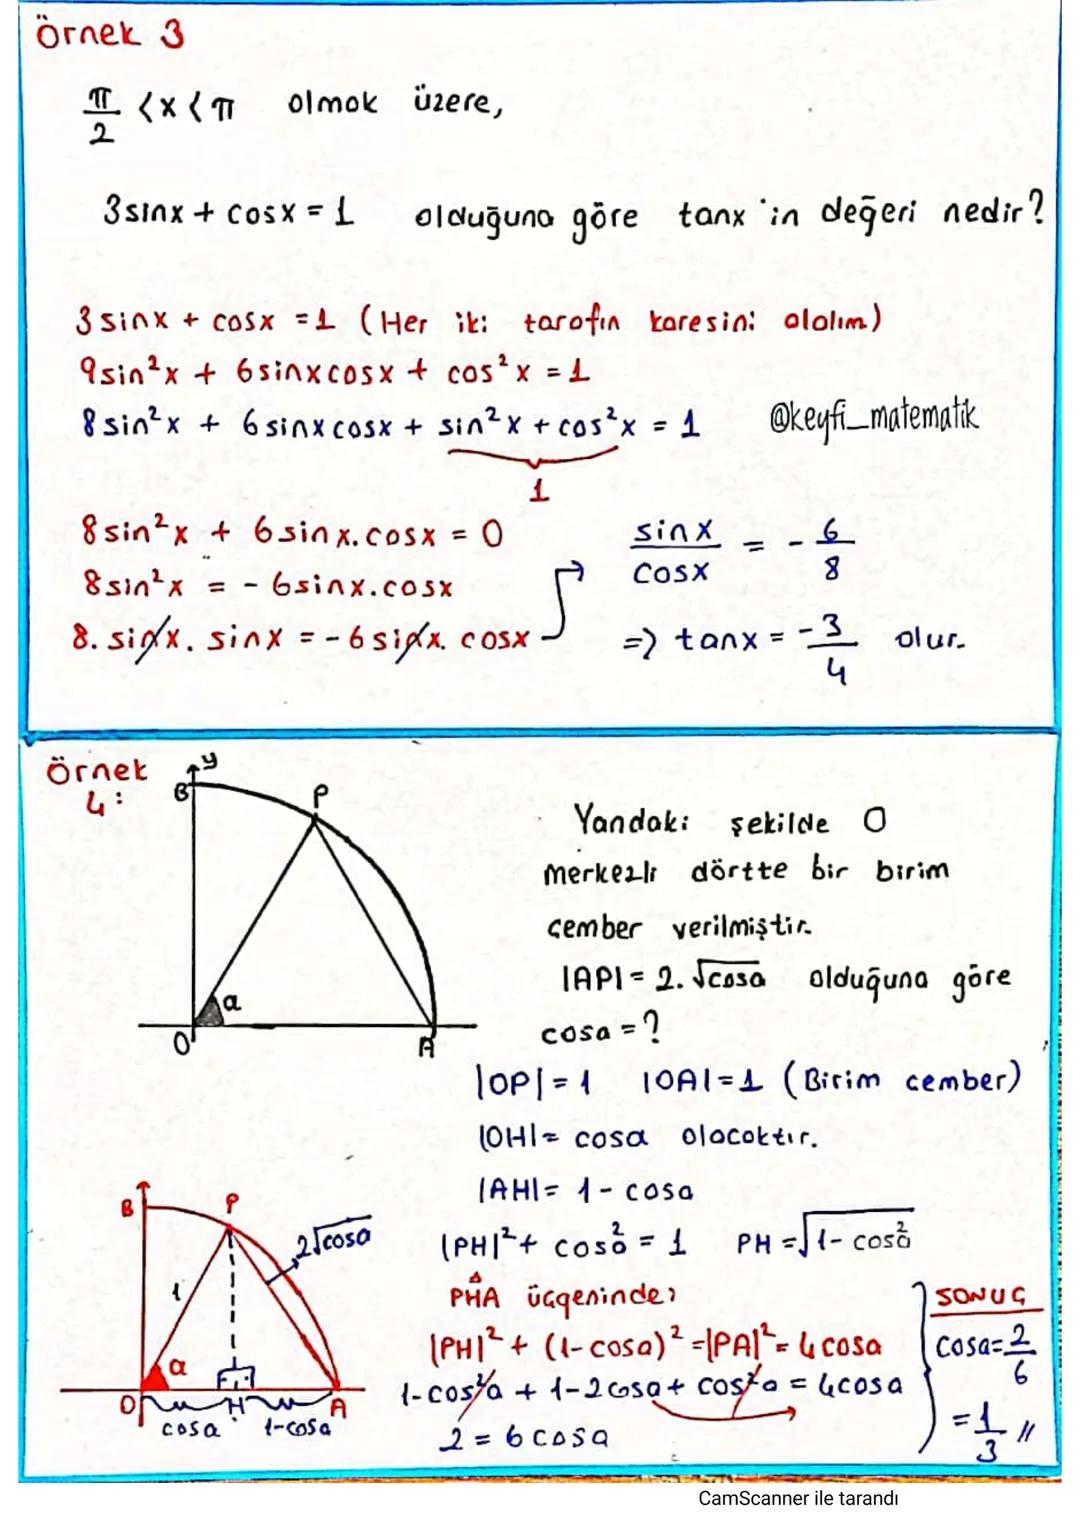 Örnek 3
π/2 < x < π olmak üzere,
3sinx + cosx = 1 olduğuna göre tanx 'in değeri nedir?
3sinx + cosx = 1 (Her iki tarafın karesini alalım)
9sin²x + 6sinxcosx + cos²x = 1
8sin²x + 6sinxcosx + sin²x + cos²x = 1
@keyfi_matematik
1
8sin²x + 6sinx.cosx = 0
8sin²x = - 6sinx.cosx
8. sinx. sinx = - 6 sinx. cosx
sinx/cosx = - 6/8
=> tanx = -3/4 olur.
Örnek 4:
y
B
P
a
O
A
Yandaki şekilde O
merkezli dörtte bir birim
çember verilmiştir.
|AP| = 2.√cosa olduğuna göre
cosa = ?
|OP| = 1 |OA| = 1 (Birim cember)
|OH| = cosa olacaktır.
|AH| = 1 - cosa
|PH|² + cos²a = 1 PH = √1 - cos²a
PHA üçgeninde;
|PH|² + (1-cosa)² = |PA|² = 4cosa
1-cos²a + 1-2cosa + cos²a = 4cosa
2 = 6cosa
SONUÇ
cosa = 2/6
= 1/3 //
B
P
2√cosa
1
a
O
H
A
cosa
1-cosa
CamScanner ile tarandı